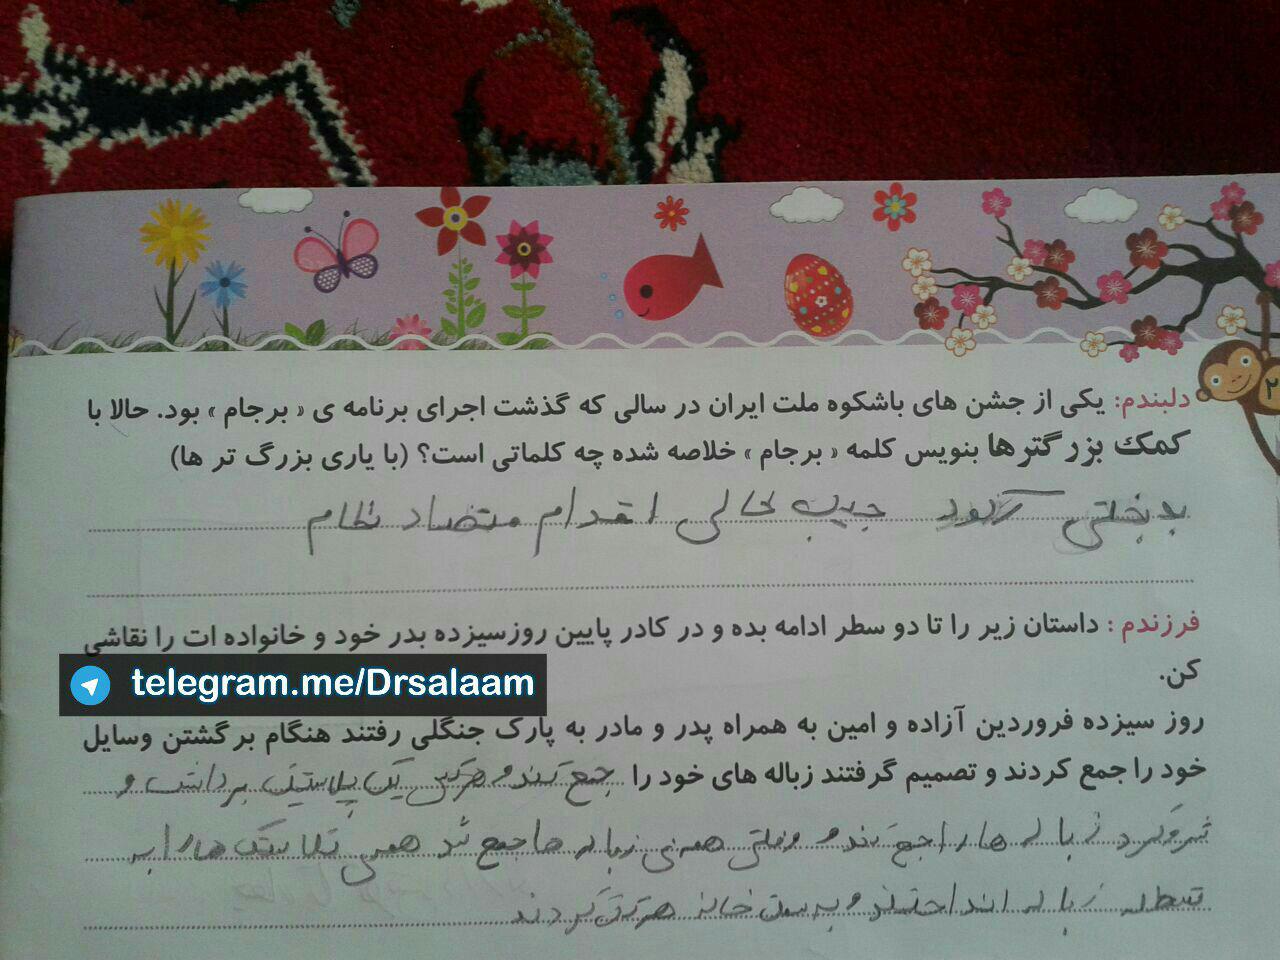 دلبندم: یکی از جشن های باشکوه ملت ایران در سالی که گذشت اجرای برنامه ی « برجام » بود. حالا با
۲
کمک بزرگترها بنویس کلمه « برجام » خلاصه شده چه کلماتی است؟ (با یاری بزرگ تر ها)
بدبختی رکود جیب خالی اقدام متضاد نظام
فرزندم : داستان زیر را تا دو سطر ادامه بده و در کادر پایین روزسیزده بدر خود و خانواده ات را نقاشی
کن.
telegram.me/Drsalaam
روز سیزده فروردین آزاده و امین به همراه پدر و مادر به پارک جنگلی رفتند هنگام برگشتن وسایل
خود را جمع کردند و تصمیم گرفتند زباله های خود را جمع کنند و هرکس یک پلاستیک برداشت و
زباله ها را جمع کردند و وقتی همه ی زباله ها جمع شد همه ی پلاستیک ها را به
سطل زباله انداختند و به سمت خانه حرکت کردند